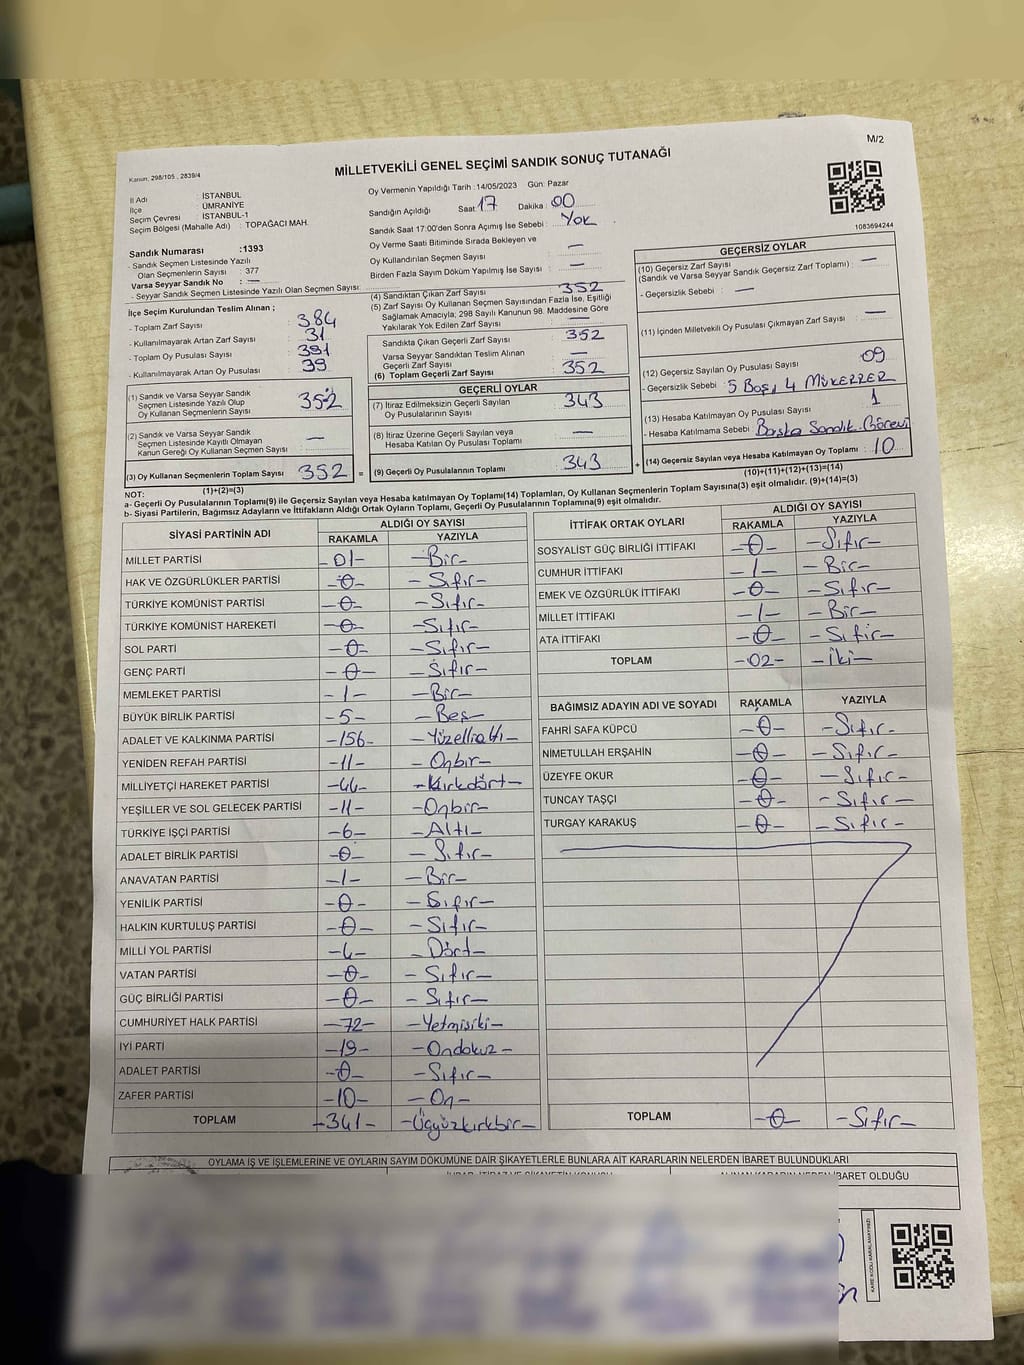 M/2
Kanun, 298/105, 2839/4
MİLLETVEKİLİ GENEL SEÇİMİ SANDIK SONUÇ TUTANAĞI
İl Adı : İSTANBUL
İlçe : ÜMRANİYE
Seçim Çevresi : İSTANBUL-1
Seçim Bölgesi (Mahalle Adı) : TOPAĞACI MAH.
Sandık Numarası :1393
- Sandık Seçmen Listesinde Yazılı
Olan Seçmenlerin Sayısı : 377
Varsa Seyyar Sandık No : —
- Seyyar Sandık Seçmen Listesinde Yazılı Olan Seçmen Sayısı:
Oy Vermenin Yapıldığı Tarih :14/05/2023 Gün: Pazar
Sandığın Açıldığı Saat 17 Dakika : 00
Sandık Saat 17:00'den Sonra Açımış İse Sebebi : Yok
Oy Verme Saati Bitiminde Sırada Bekleyen ve
Oy Kullandırılan Seçmen Sayısı : —
Birden Fazla Sayım Döküm Yapılmış İse Sayısı : —
1083694244
İlçe Seçim Kurulundan Teslim Alınan ;
- Toplam Zarf Sayısı : 384
- Kullanılmayarak Artan Zarf Sayısı : 31
- Toplam Oy Pusulası Sayısı : 391
- Kullanılmayarak Artan Oy Pusulası : 39
(1) Sandık ve Varsa Seyyar Sandık
Seçmen Listesinde Yazılı Olup
Oy Kullanan Seçmenlerin Sayısı : 352
(2) Sandık ve Varsa Seyyar Sandık
Seçmen Listesinde Kayıtlı Olmayan
Kanun Gereği Oy Kullanan Seçmen Sayısı : —
(3) Oy Kullanan Seçmenlerin Toplam Sayısı : 352
(1)+(2)=(3)
(4) Sandıktan Çıkan Zarf Sayısı : 352
(5) Zarf Sayısı Oy Kullanan Seçmen Sayısından Fazla İse, Eşitliği
Sağlamak Amacıyla; 298 Sayılı Kanunun 98. Maddesine Göre
Yakılarak Yok Edilen Zarf Sayısı : —
Sandıkta Çıkan Geçerli Zarf Sayısı : 352
Varsa Seyyar Sandıktan Teslim Alınan
Geçerli Zarf Sayısı : —
(6) Toplam Geçerli Zarf Sayısı : 352
GEÇERLİ OYLAR
(7) İtiraz Edilmeksizin Geçerli Sayılan
Oy Pusulalarının Sayısı : 343
(8) İtiraz Üzerine Geçerli Sayılan veya
Hesaba Katılan Oy Pusulası Toplamı : —
= (9) Geçerli Oy Pusulalarının Toplamı : 343 +
GEÇERSİZ OYLAR
(10) Geçersiz Zarf Sayısı
(Sandık ve Varsa Seyyar Sandık Geçersiz Zarf Toplamı) : —
- Geçersizlik Sebebi : —
(11) İçinden Milletvekili Oy Pusulası Çıkmayan Zarf Sayısı : —
(12) Geçersiz Sayılan Oy Pusulası Sayısı : 09
- Geçersizlik Sebebi : 5 Boş, 4 MÜKERRER
(13) Hesaba Katılmayan Oy Pusulası Sayısı : 1
- Hesaba Katılmama Sebebi : Başka Sandık Görevi
(14) Geçersiz Sayılan veya Hesaba Katılmayan Oy Toplamı : 10
(10)+(11)+(12)+(13)=(14)
NOT:
a- Geçerli Oy Pusulalarının Toplamı(9) ile Geçersiz Sayılan veya Hesaba katılmayan Oy Toplamı(14) Toplamları, Oy Kullanan Seçmenlerin Toplam Sayısına(3) eşit olmalıdır. (9)+(14)=(3)
b- Siyasi Partilerin, Bağımsız Adayların ve İttifakların Aldığı Ortak Oyların Toplamı, Geçerli Oy Pusulalarının Toplamına(9) eşit olmalıdır.
SİYASİ PARTİNİN ADI ALDIĞI OY SAYISI
RAKAMLA YAZIYLA
MİLLET PARTİSİ -01- -Bir-
HAK VE ÖZGÜRLÜKLER PARTİSİ -0- -Sıfır-
TÜRKİYE KOMÜNİST PARTİSİ -0- -Sıfır-
TÜRKİYE KOMÜNİST HAREKETİ -0- -Sıfır-
SOL PARTİ -0- -Sıfır-
GENÇ PARTİ -0- -Sıfır-
MEMLEKET PARTİSİ -1- -Bir-
BÜYÜK BİRLİK PARTİSİ -5- -Beş-
ADALET VE KALKINMA PARTİSİ -156- -Yüzellialtı-
YENİDEN REFAH PARTİSİ -11- -Onbir-
MİLLİYETÇİ HAREKET PARTİSİ -44- -Kırkdört-
YEŞİLLER VE SOL GELECEK PARTİSİ -11- -Onbir-
TÜRKİYE İŞÇİ PARTİSİ -6- -Altı-
ADALET BİRLİK PARTİSİ -0- -Sıfır-
ANAVATAN PARTİSİ -1- -Bir-
YENİLİK PARTİSİ -0- -Sıfır-
HALKIN KURTULUŞ PARTİSİ -0- -Sıfır-
MİLLİ YOL PARTİSİ -4- -Dört-
VATAN PARTİSİ -0- -Sıfır-
GÜÇ BİRLİĞİ PARTİSİ -0- -Sıfır-
CUMHURİYET HALK PARTİSİ -72- -Yetmişiki-
İYİ PARTİ -19- -Ondokuz-
ADALET PARTİSİ -0- -Sıfır-
ZAFER PARTİSİ -10- -On-
TOPLAM -341- -Üçyüzkırkbir-
İTTİFAK ORTAK OYLARI ALDIĞI OY SAYISI
RAKAMLA YAZIYLA
SOSYALİST GÜÇ BİRLİĞİ İTTİFAKI -0- -Sıfır-
CUMHUR İTTİFAKI -1- -Bir-
EMEK VE ÖZGÜRLÜK İTTİFAKI -0- -Sıfır-
MİLLET İTTİFAKI -1- -Bir-
ATA İTTİFAKI -0- -Sıfır-
TOPLAM -02- -İki-
BAĞIMSIZ ADAYIN ADI VE SOYADI RAKAMLA YAZIYLA
FAHRİ SAFA KÜPCÜ -0- -Sıfır-
NİMETULLAH ERŞAHİN -0- -Sıfır-
ÜZEYFE OKUR -0- -Sıfır-
TUNCAY TAŞÇI -0- -Sıfır-
TURGAY KARAKUŞ -0- -Sıfır-
TOPLAM -0- -Sıfır-
OYLAMA İŞ VE İŞLEMLERİNE VE OYLARIN SAYIM DÖKÜMÜNE DAİR ŞİKAYETLERLE BUNLARA AİT KARARLARIN NELERDEN İBARET BULUNDUKLARI
İBARET OLDUĞU
KARE KODU KARALAMAYINIZ!